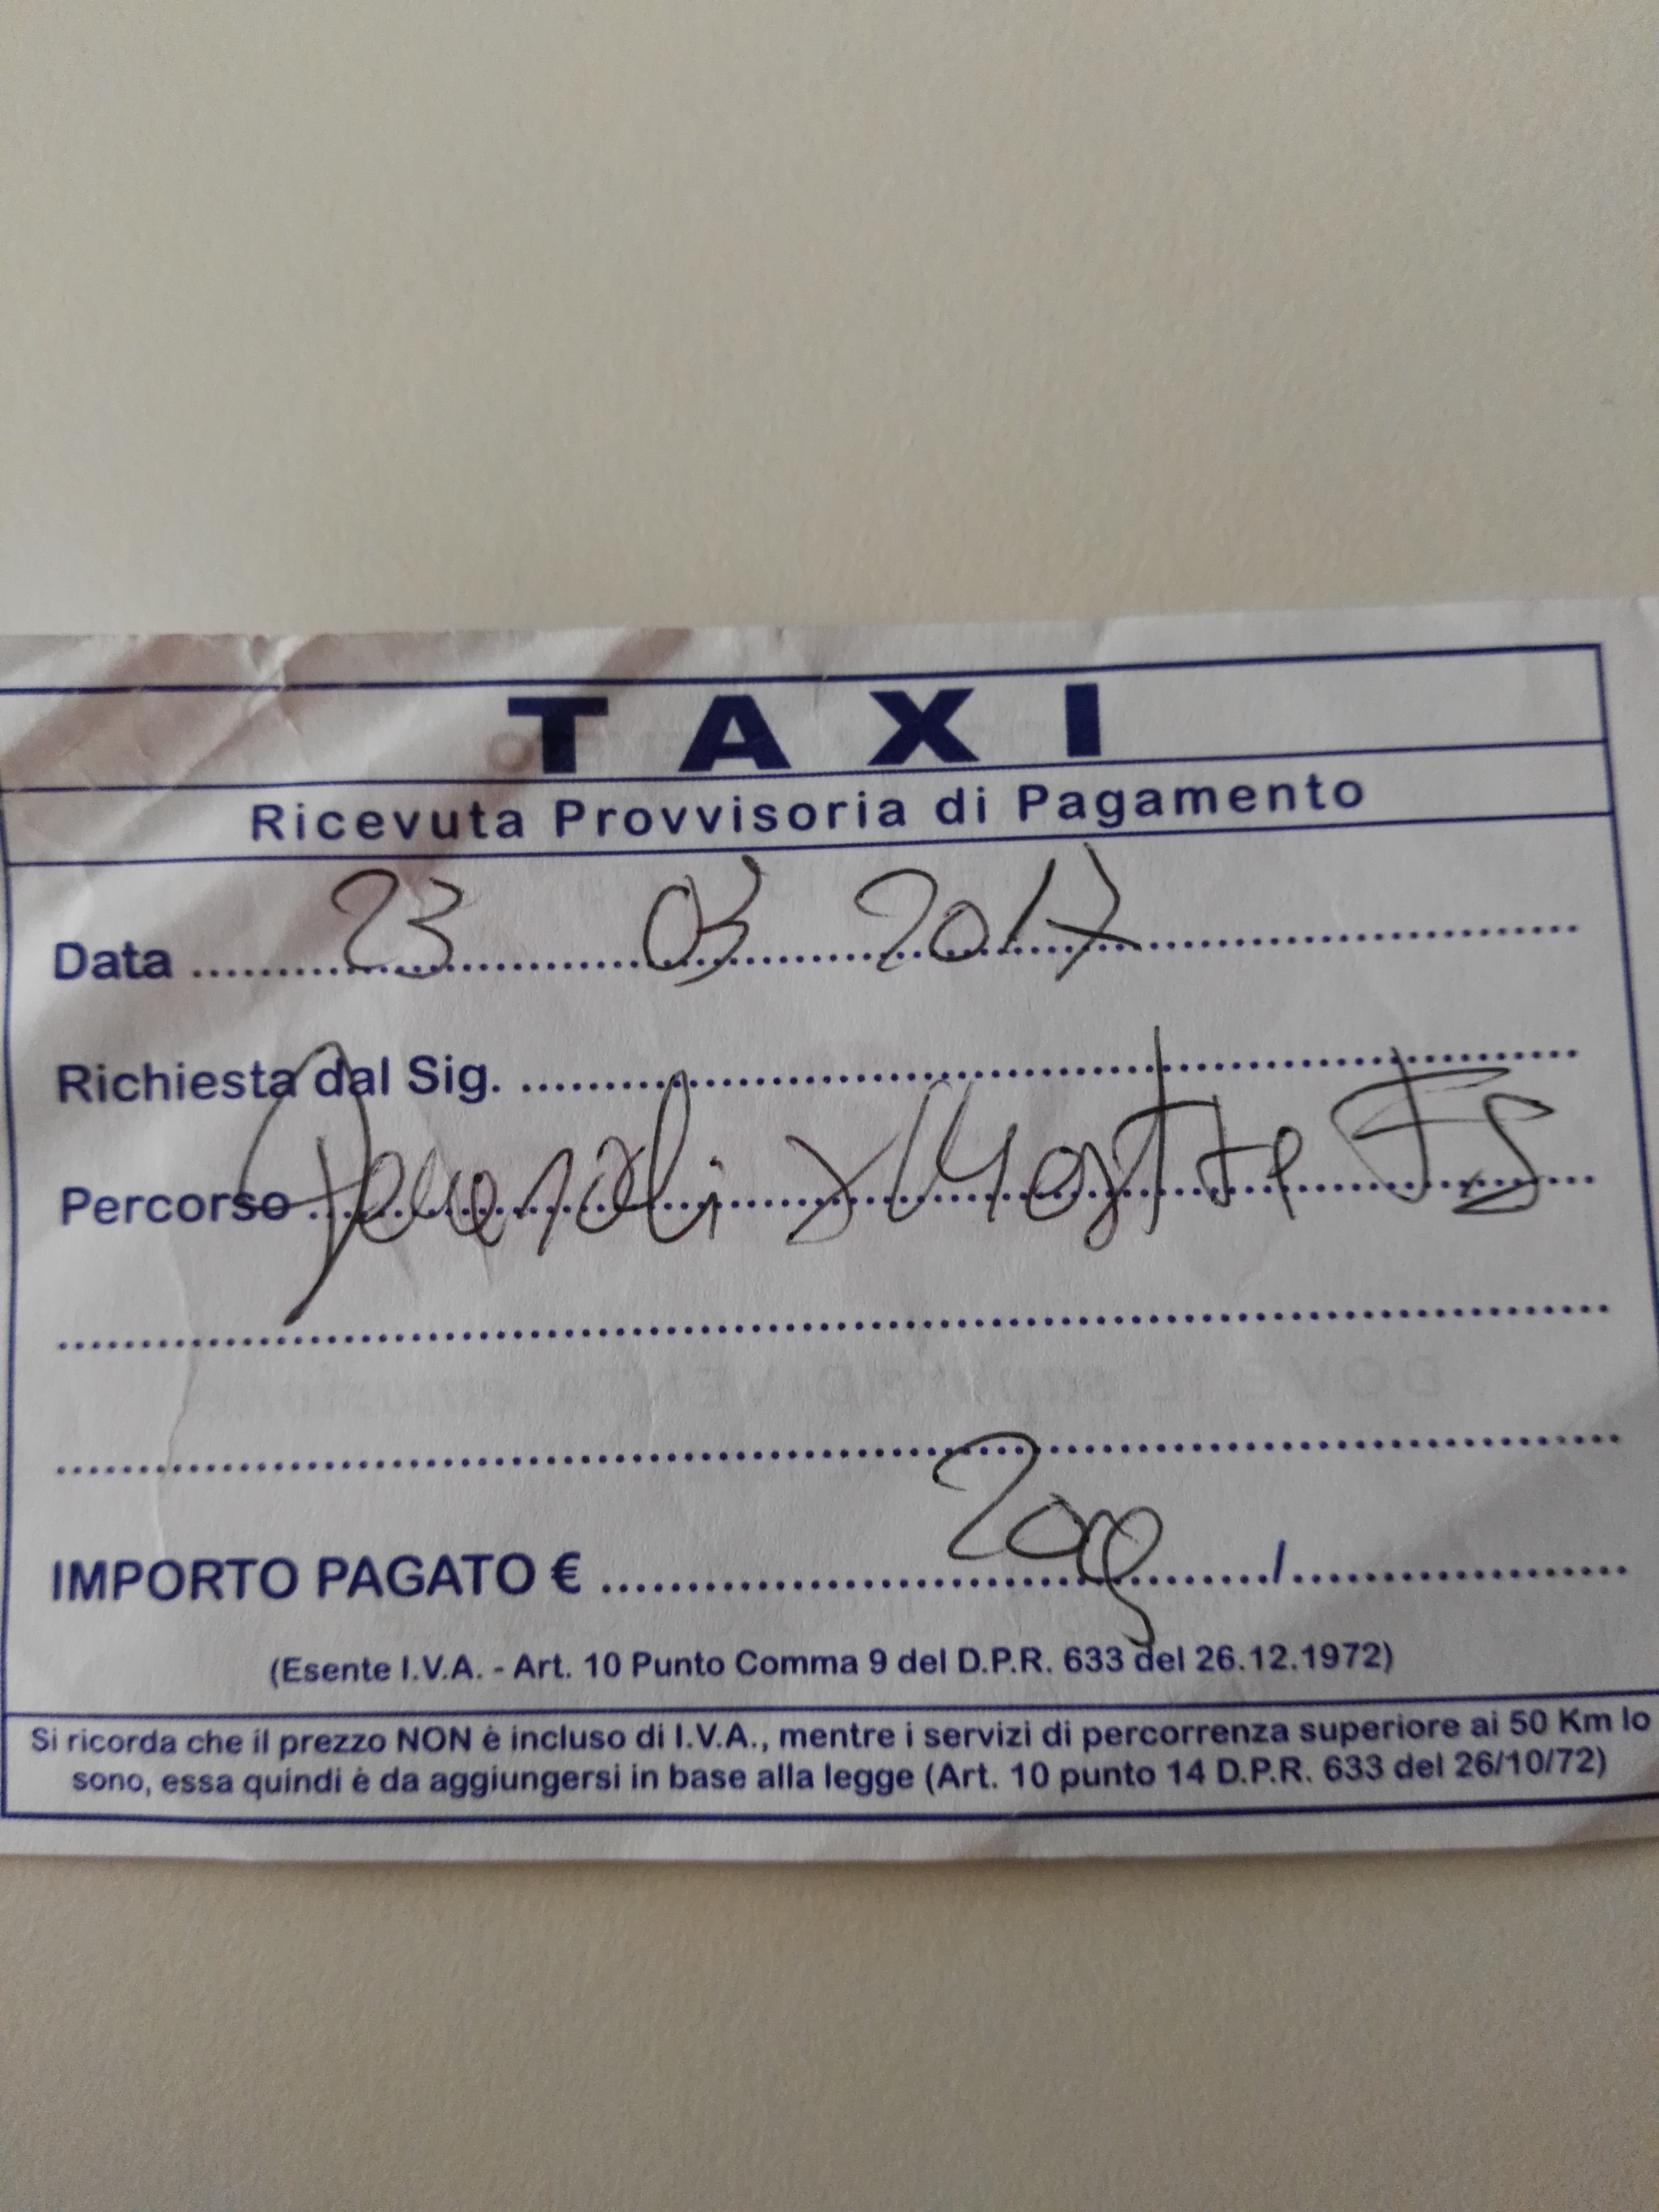 TAXI
Ricevuta Provvisoria di Pagamento
Data 23 03 2017
Richiesta dal Sig.
Percorso Generali x Mestre FS
IMPORTO PAGATO € /
(Esente I.V.A. - Art. 10 Punto Comma 9 del D.P.R. 633 del 26.12.1972)
Si ricorda che il prezzo NON è incluso di I.V.A., mentre i servizi di percorrenza superiore ai 50 Km lo
sono, essa quindi è da aggiungersi in base alla legge (Art. 10 punto 14 D.P.R. 633 del 26/10/72)